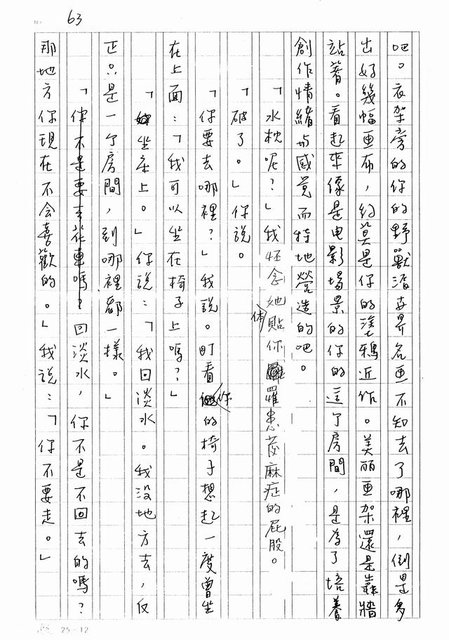 63
吧。衣架旁的你的野獸派世界名画不知去了哪裡，倒是多
出好幾幅画布，約莫是你的塗鴉近作。美丽画架還是靠牆
站著。看起來像是电影場景的你的這个房間，是為了培養
創作情緒与感覚而特地營造的吧。
「水枕呢？」我怀念她貼伏你罹患蕁麻症的屁股。
「破了。」你說。
「你要去哪裡？」我說。盯看你的椅子想起一度曾坐
在上面：「我可以坐在椅子上嗎？」
「坐床上。」你說：「我回淡水。我没地方去，反
正只是一个房間，到哪裡都一樣。」
「你不是要去花蓮嗎？回淡水，你不是不回去的嗎？
那地方你現在不会喜歡的。」我說：「你不要走。」